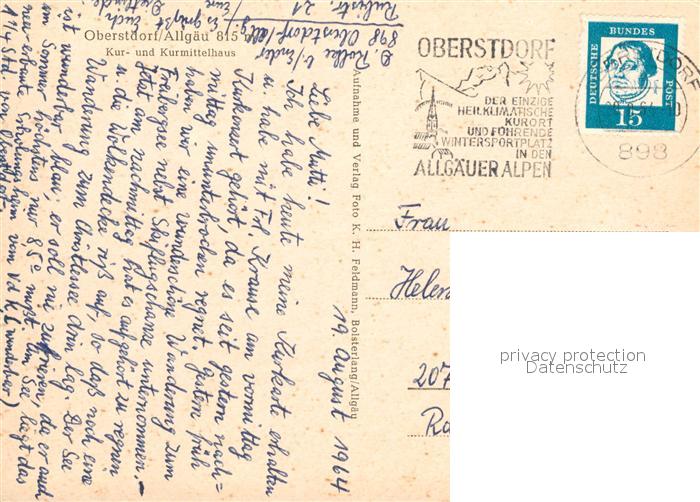 Oberstdorf/Allgäu 815
Kur- und Kurmittelhaus
19. August 1964
Liebe Mutti!
Ich habe heute meine Kurkarte erhalten
u. habe mit Frl. Krause am vormittag
Kurkonzert gehört, da es seit gestern nach=
mittag ununterbrochen regnet. Gestern früh
haben wir eine wunderschöne Wandrung zum
Freibergsee nebst Skiflugschanze unternommen.
Jetzt am nachmittag hat es aufgehört zu regnen
u. die Wolkendecke riß auf, so daß noch eine
Wandrung zum Christlessee drin lag. Der See
ist wunderbar blau; er soll nie zufrieren, da er auch
im Sommer höchstens nur 8,5° mißt. Am See liegt das
neu erbaute
1¼ Std. von Oberstdorf
898 Oberstdorf
Aufnahme und Verlag Foto K. H. Feldmann, Bolsterlang/Allgäu
OBERSTDORF
DER EINZIGE
HEILKLIMATISCHE
KURORT
UND FÜHRENDE
WINTERSPORTPLATZ
IN DEN
ALLGÄUER ALPEN
DEUTSCHE BUNDESPOST
15
898
Frau
Helen
207
privacy protection
Datenschutz